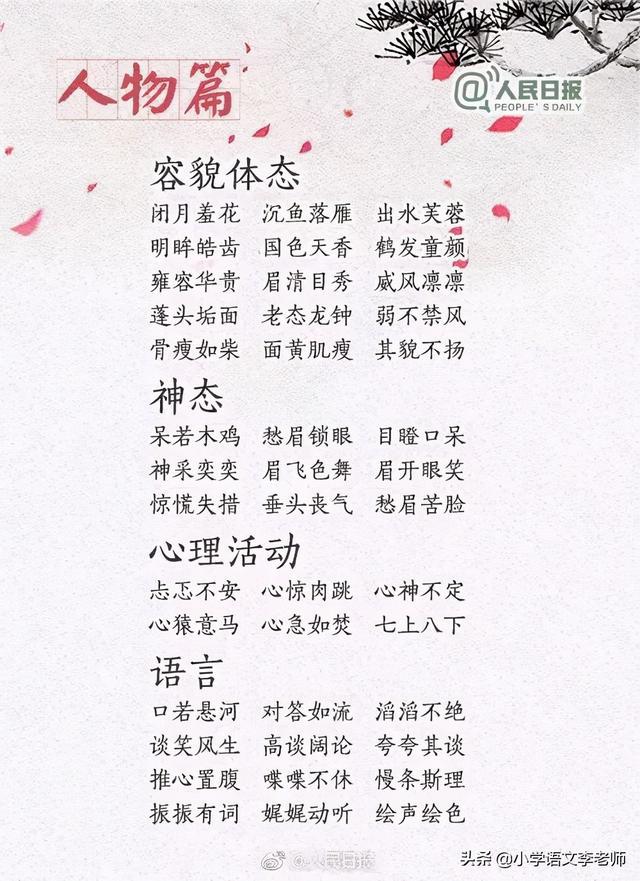 人物篇
@人民日报
PEOPLE'S DAILY
容貌体态
闭月羞花 沉鱼落雁 出水芙蓉
明眸皓齿 国色天香 鹤发童颜
雍容华贵 眉清目秀 威风凛凛
蓬头垢面 老态龙钟 弱不禁风
骨瘦如柴 面黄肌瘦 其貌不扬
神态
呆若木鸡 愁眉锁眼 目瞪口呆
神采奕奕 眉飞色舞 眉开眼笑
惊慌失措 垂头丧气 愁眉苦脸
心理活动
忐忑不安 心惊肉跳 心神不定
心猿意马 心急如焚 七上八下
语言
口若悬河 对答如流 滔滔不绝
谈笑风生 高谈阔论 夸夸其谈
推心置腹 喋喋不休 慢条斯理
振振有词 娓娓动听 绘声绘色
@人民日报
头条 @小学语文李老师